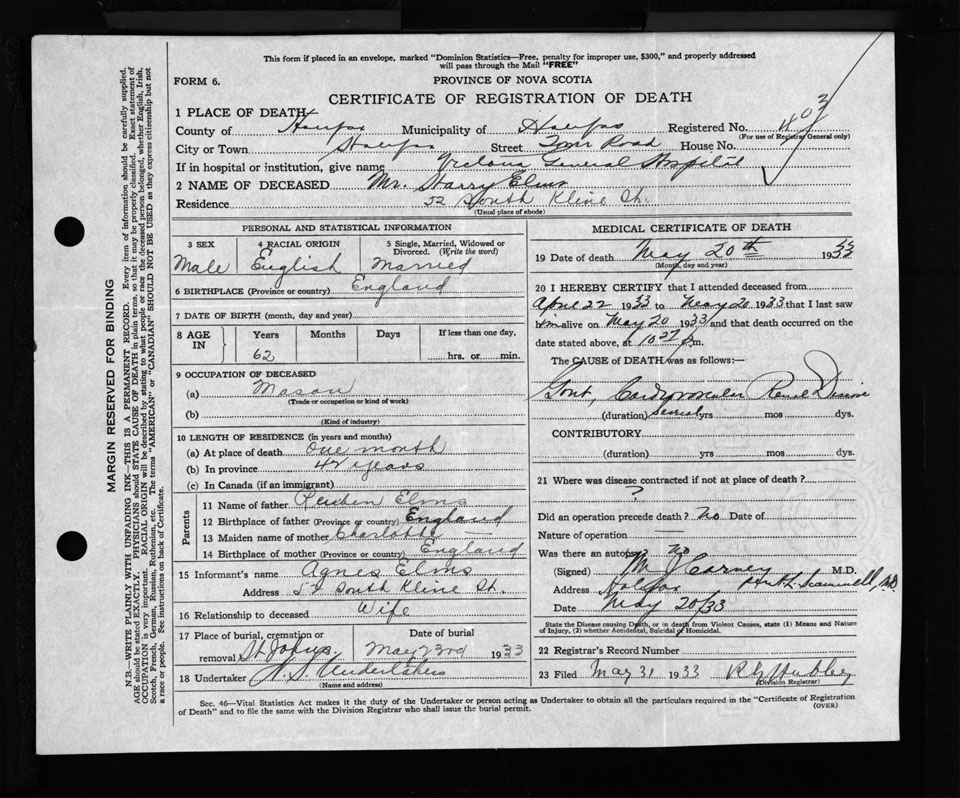 This form if placed in an envelope, marked "Dominion Statistics—Free, penalty for improper use, $300," and properly addressed
will pass through the Mail "FREE"
FORM 6.
PROVINCE OF NOVA SCOTIA
CERTIFICATE OF REGISTRATION OF DEATH
1 PLACE OF DEATH
County of Halifax Municipality of Halifax Registered No. 403
(For use of Registrar General only)
City or Town Halifax Street Tower Road House No.
If in hospital or institution, give name Victoria General Hospital
2 NAME OF DECEASED Mr. Harry Elms
Residence 52 South Kline St.
(Usual place of abode)
PERSONAL AND STATISTICAL INFORMATION
3 SEX Male
4 RACIAL ORIGIN English
5 Single, Married, Widowed or Divorced. (Write the word) Married
6 BIRTHPLACE (Province or country) England
7 DATE OF BIRTH (month, day and year)
8 AGE IN Years 62 Months Days If less than one day, hrs. or min.
9 OCCUPATION OF DECEASED
(a) Mason
(Trade or occupation or kind of work)
(b)
(Kind of industry)
10 LENGTH OF RESIDENCE (in years and months)
(a) At place of death One month
(b) In province 42 years
(c) In Canada (if an immigrant)
Parents
11 Name of father Reuben Elms
12 Birthplace of father (Province or country) England
13 Maiden name of mother Charlotte —
14 Birthplace of mother (Province or country) England
15 Informant's name Agnes Elms
Address 52 South Kline St.
16 Relationship to deceased Wife
17 Place of burial, cremation or removal St Johns. Date of burial May 23rd 1933
18 Undertaker N. S. Undertakers
(Name and address)
MEDICAL CERTIFICATE OF DEATH
19 Date of death May 20th 1933
(Month, day and year)
20 I HEREBY CERTIFY that I attended deceased from
April 22 1933 to May 20 1933 that I last saw
him alive on May 20 1933 and that death occurred on the
date stated above, at 10 27 p.m.
The CAUSE of DEATH was as follows:—
Gout, Cardiovascular Renal Disease
(duration) Several yrs mos dys.
CONTRIBUTORY
(duration) yrs mos dys.
21 Where was disease contracted if not at place of death?
?
Did an operation precede death? No Date of
Nature of operation —
Was there an autopsy no
(Signed) M J Carney M.D.
Address Halifax
Date May 20/33
State the Disease causing Death, or in death from Violent Causes, state (1) Means and Nature
of Injury, (2) whether Accidental, Suicidal or Homicidal.
22 Registrar's Record Number
23 Filed May 31 1933
(Division Registrar)
Sec. 46—Vital Statistics Act makes it the duty of the Undertaker or person acting as Undertaker to obtain all the particulars required in the "Certificate of Registration
of Death" and to file the same with the Division Registrar who shall issue the burial permit.
(OVER)
MARGIN RESERVED FOR BINDING
N.B.—WRITE PLAINLY WITH UNFADING INK—THIS IS A PERMANENT RECORD. Every item of information should be carefully supplied.
AGE should be stated EXACTLY. PHYSICIANS should STATE CAUSE OF DEATH in plain terms, so that it may be properly classified. Exact statement of
OCCUPATION is very important. RACIAL ORIGIN will be described by stating to what people or race the deceased person belonged, whether English, Irish,
Scotch, French, German, Russian, Ruthenian, etc. The terms "AMERICAN" or "CANADIAN" SHOULD NOT BE USED as they express citizenship but not
a race or people. See instructions on back of Certificate.